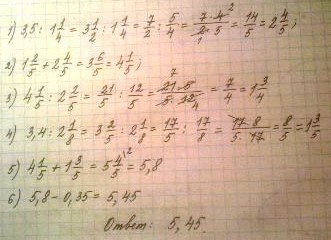 1) 3,5 : 1 1/4 = 3 1/2 : 1 1/4 = 7/2 : 5/4 = 7·4²/2₁·5 = 14/5 = 2 4/5;
2) 1 2/5 + 2 4/5 = 3 6/5 = 4 1/5;
3) 4 1/5 : 2 2/5 = 21/5 : 12/5 = 21⁷·5/5·12₄ = 7/4 = 1 3/4
4) 3,4 : 2 1/8 = 3 2/5 : 2 1/8 = 17/5 : 17/8 = 17·8/5·17 = 8/5 = 1 3/5
5) 4 1/5 + 1 3/5 = 5 4/5 \² = 5,8
6) 5,8 - 0,35 = 5,45
Ответ: 5,45